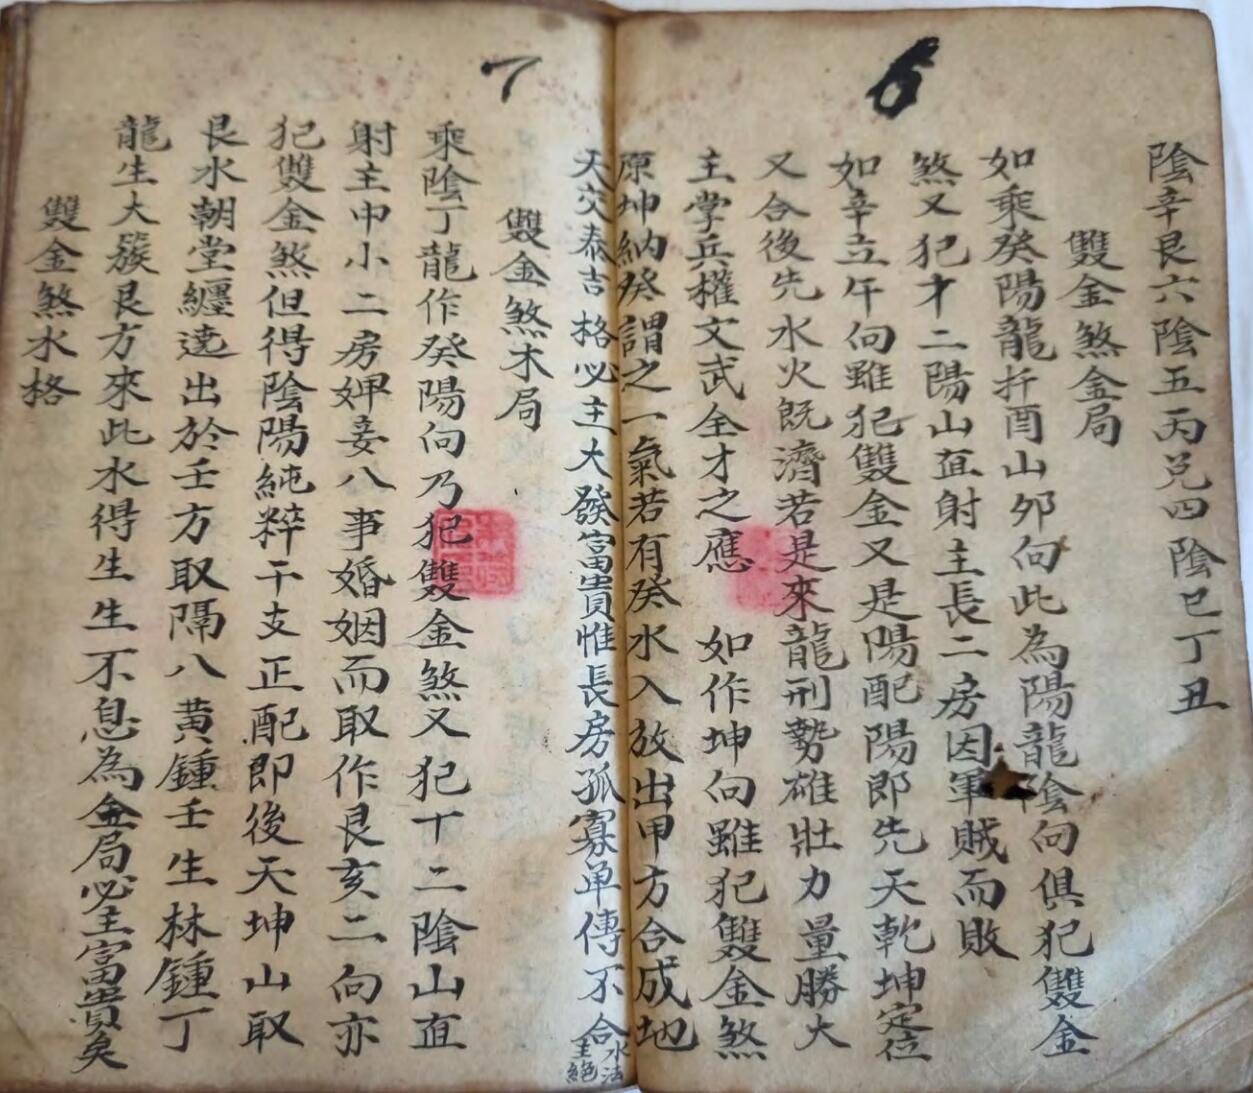 6
陰辛艮六陰五丙兌四陰巳丁丑
雙金煞金局
如乘癸陽龍扦酉山夘向此為陽龍陰向俱犯雙金
煞又犯才二陽山直射主長二房因軍賊而敗
如辛立午向雖犯雙金又是陽配陽即先天乾坤定位
又合後先水火既濟若是來龍刑勢雄壯力量勝大
主掌兵權文武全才之應 如作坤向雖犯雙金煞
原坤納癸謂之一氣若有癸水入放出甲方合成地
天交泰吉格必主大發富貴惟長房孤寡单傳不合水法主絕
7
雙金煞木局
乘陰丁龍作癸陽向乃犯雙金煞又犯十二陰山直
射主中小二房婢妾八事婚姻而取作艮亥二向亦
犯雙金煞但得陰陽純粹干支正配即後天坤山取
艮水朝堂纏遶出於壬方取隔八黄鍾壬生林鍾丁
龍生大蔟艮方來此水得生生不息為金局必主富貴矣
雙金煞水格